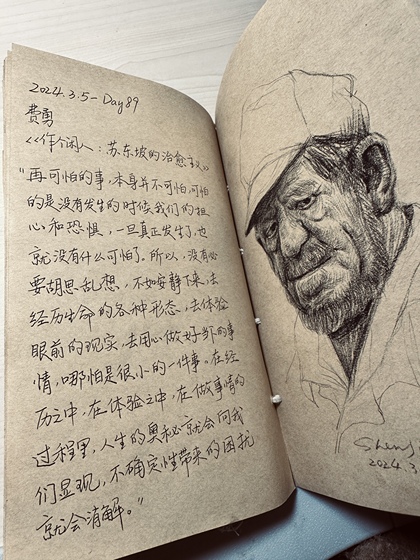 2024.3.5-Day89
费勇
<<作个闲人：苏东坡的治愈主义>>
"再可怕的事,本身并不可怕,可怕
的是没有发生的时候我们的担
心和恐惧,一旦真正发生了,也
就没有什么可怕了。所以,没有必
要胡思乱想,不如安静下来,去
经历生命的各种形态,去体验
眼前的现实,去用心做好当下的事
情,哪怕是很小的一件事。在经
历之中,在体验之中,在做事情的
过程里,人生的奥秘就会向我
们显现,不确定性带来的困扰
就会消解。"
2024.3.